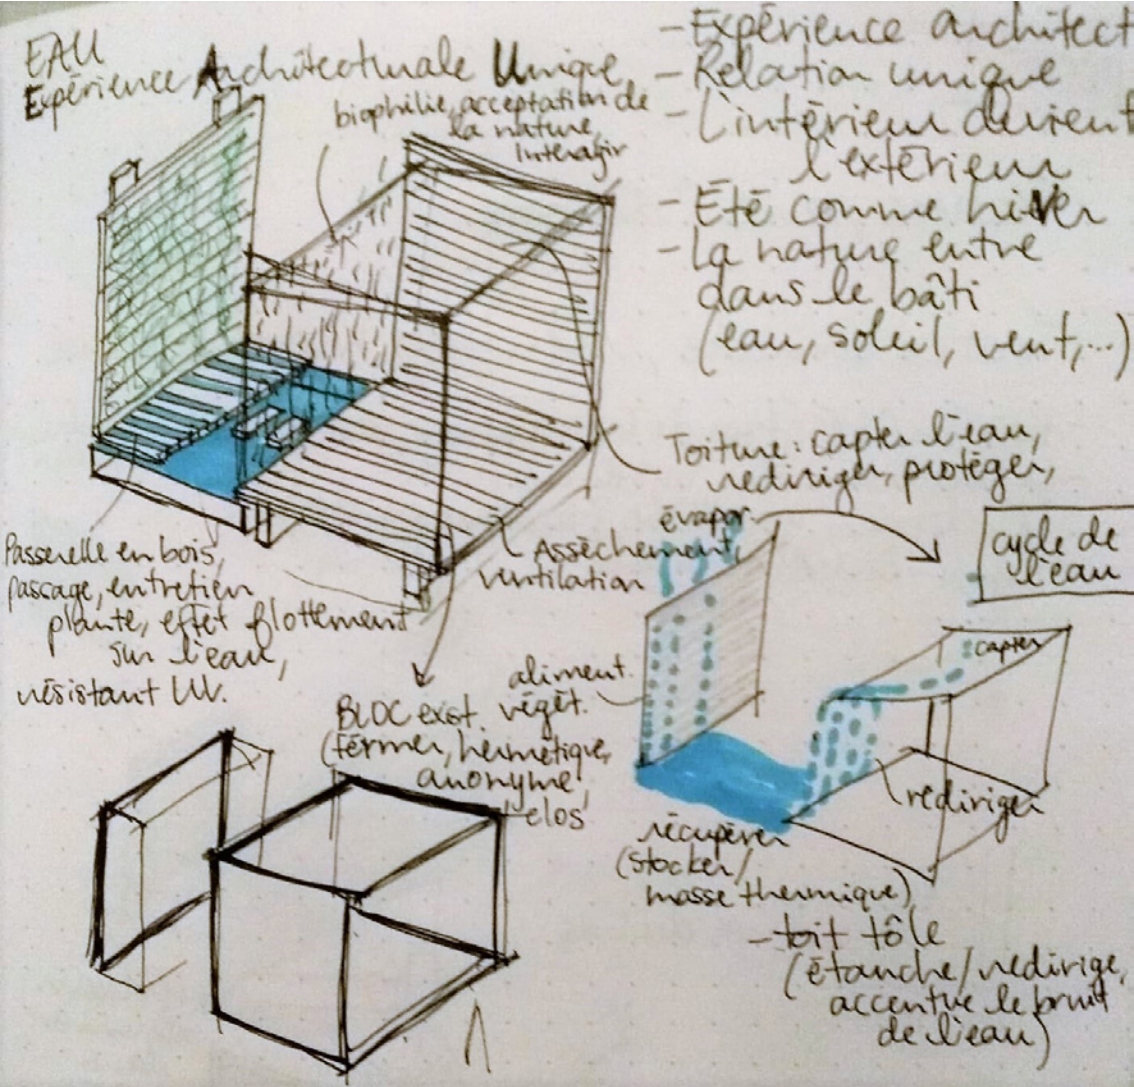 EAU
Expérience Architecturale Unique,
biophilie, acceptation de
la nature,
Interagir
- Expérience architect
- Relation unique
- L'intérieur devient
l'extérieur
- Été comme hiver
- La nature entre
dans le bâti
(eau, soleil, vent,...)
Toiture: capter l'eau,
rediriger, protéger,
évapor.
cycle de
l'eau
Assèchement,
ventilation
Passerelle en bois,
pascage, entretien
plante, effet flottement
sur l'eau,
résistant UV.
capter
aliment.
végét.
BLOC exist.
(fermer, hermétique,
anonyme,
clos
rediriger
récupérer
(stocker/
masse thermique)
- toit tôle
(étanche/redirige,
accentue le bruit
de l'eau)